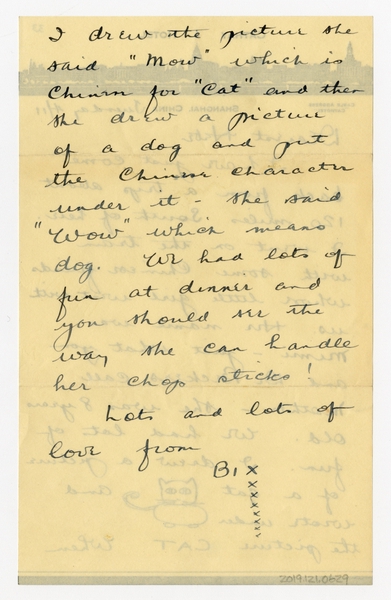 I drew the picture she
said "Mow" which is
Chinese for "Cat" and then
she drew a picture
of a dog and put
the Chinese character
under it - she said
"Wow" which means
dog. We had lots of
fun at dinner and
you should see the
way she can handle
her chop sticks!
Lots and lots of
love from
BIX
xxxxxxx
2019.121.0629